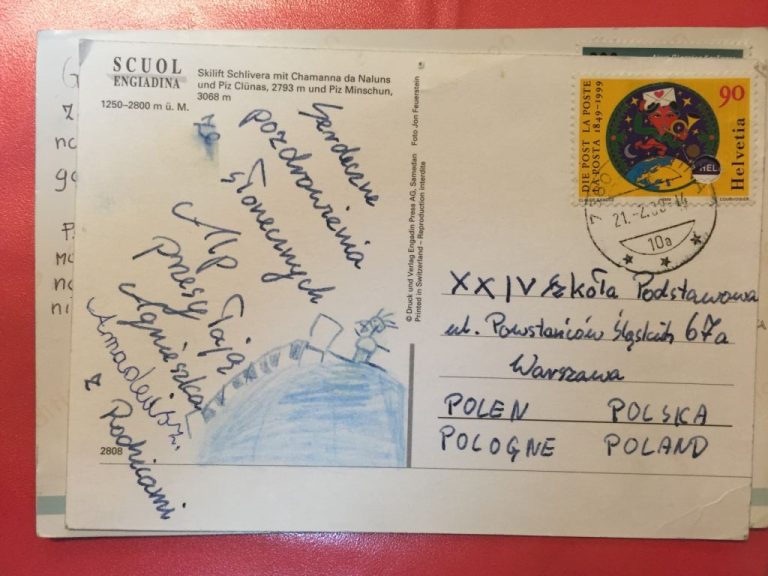 SCUOL
ENGIADINA
1250–2800 m ü. M.
Skilift Schlivera mit Chamanna da Naluns
und Piz Clünas, 2793 m und Piz Minschun,
3068 m
Serdeczne
pozdrowienia
ze
słonecznych
Alp
przesyłają
Agnieszka
Amadeusz
z Rodzicami
2808
© Druck und Verlag Engadin Press AG, Samedan Foto Jon Feuerstein
Printed in Switzerland – Reproduction interdite
DIE POST LA POSTE
LA POSTA 1849–1999
90
Helvetia
HEL
21.-2.00-14
10a
XXIV Szkoła Podstawowa
ul. Powstańców Śląskich 67a
Warszawa
POLEN POLSKA
POLOGNE POLAND